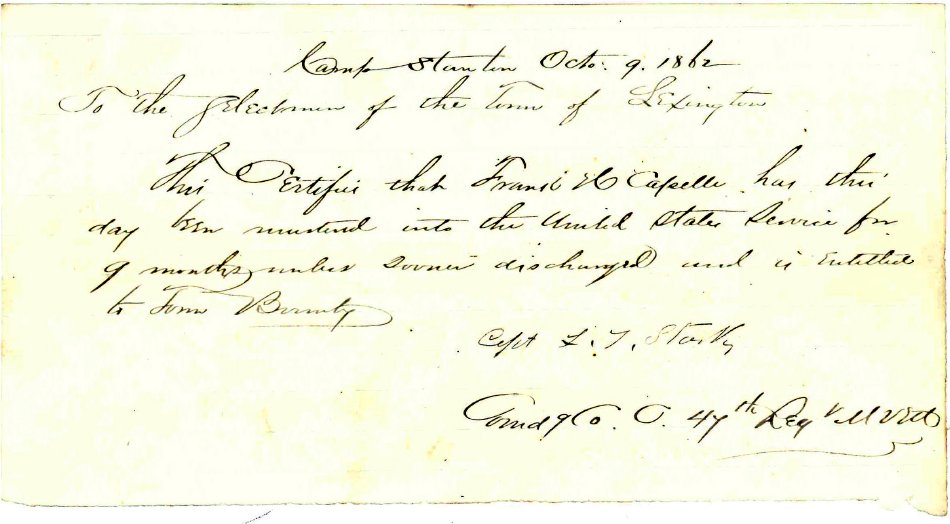 Camp Stanton Octo. 9. 1862
To the Selectmen of the Town of Lexington
This Certifies that Frank H Capelle has this
day been mustered into the United States Service for
9 months unless sooner discharged and is Entitled
to Town Bounty
Capt L. T. Starky
Comdg Co. 47th Regt M V M